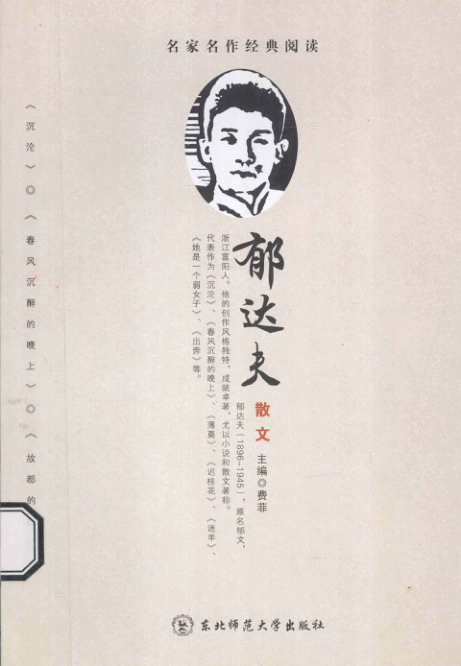 名家名作经典阅读
郁达夫
散文
主编◎费菲
郁达夫（1896—1945），原名郁文，
浙江富阳人。他的创作风格独特，成就卓著，尤以小说和散文著称。
代表作为《沉沦》、《春风沉醉的晚上》、《薄奠》、《迟桂花》、《迷羊》、
《她是一个弱女子》、《出奔》等。
《沉沦》◎《春风沉醉的晚上》◎《故都的
东北师范大学出版社